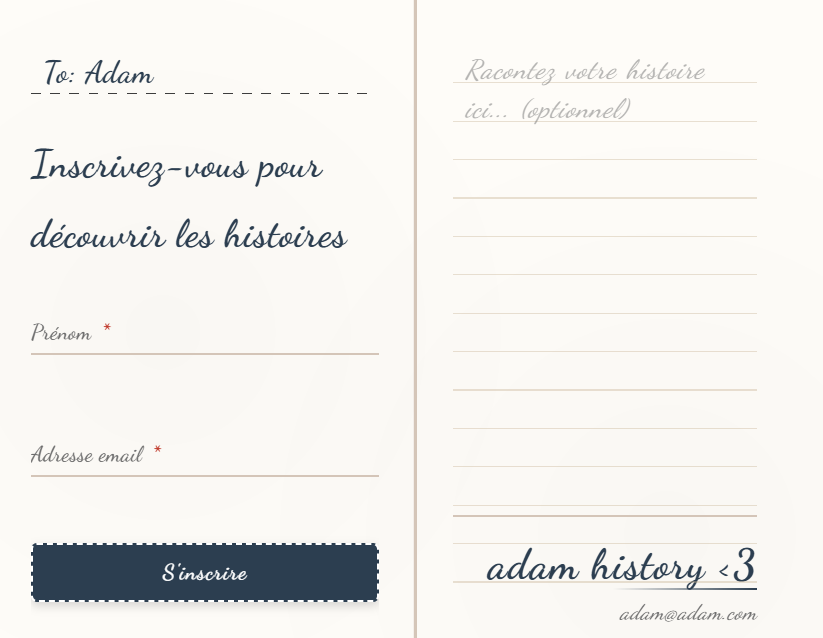 To: Adam
Inscrivez-vous pour
découvrir les histoires
Prénom *
Adresse email *
S'inscrire
Racontez votre histoire
ici... (optionnel)
adam history <3
adam@adam.com